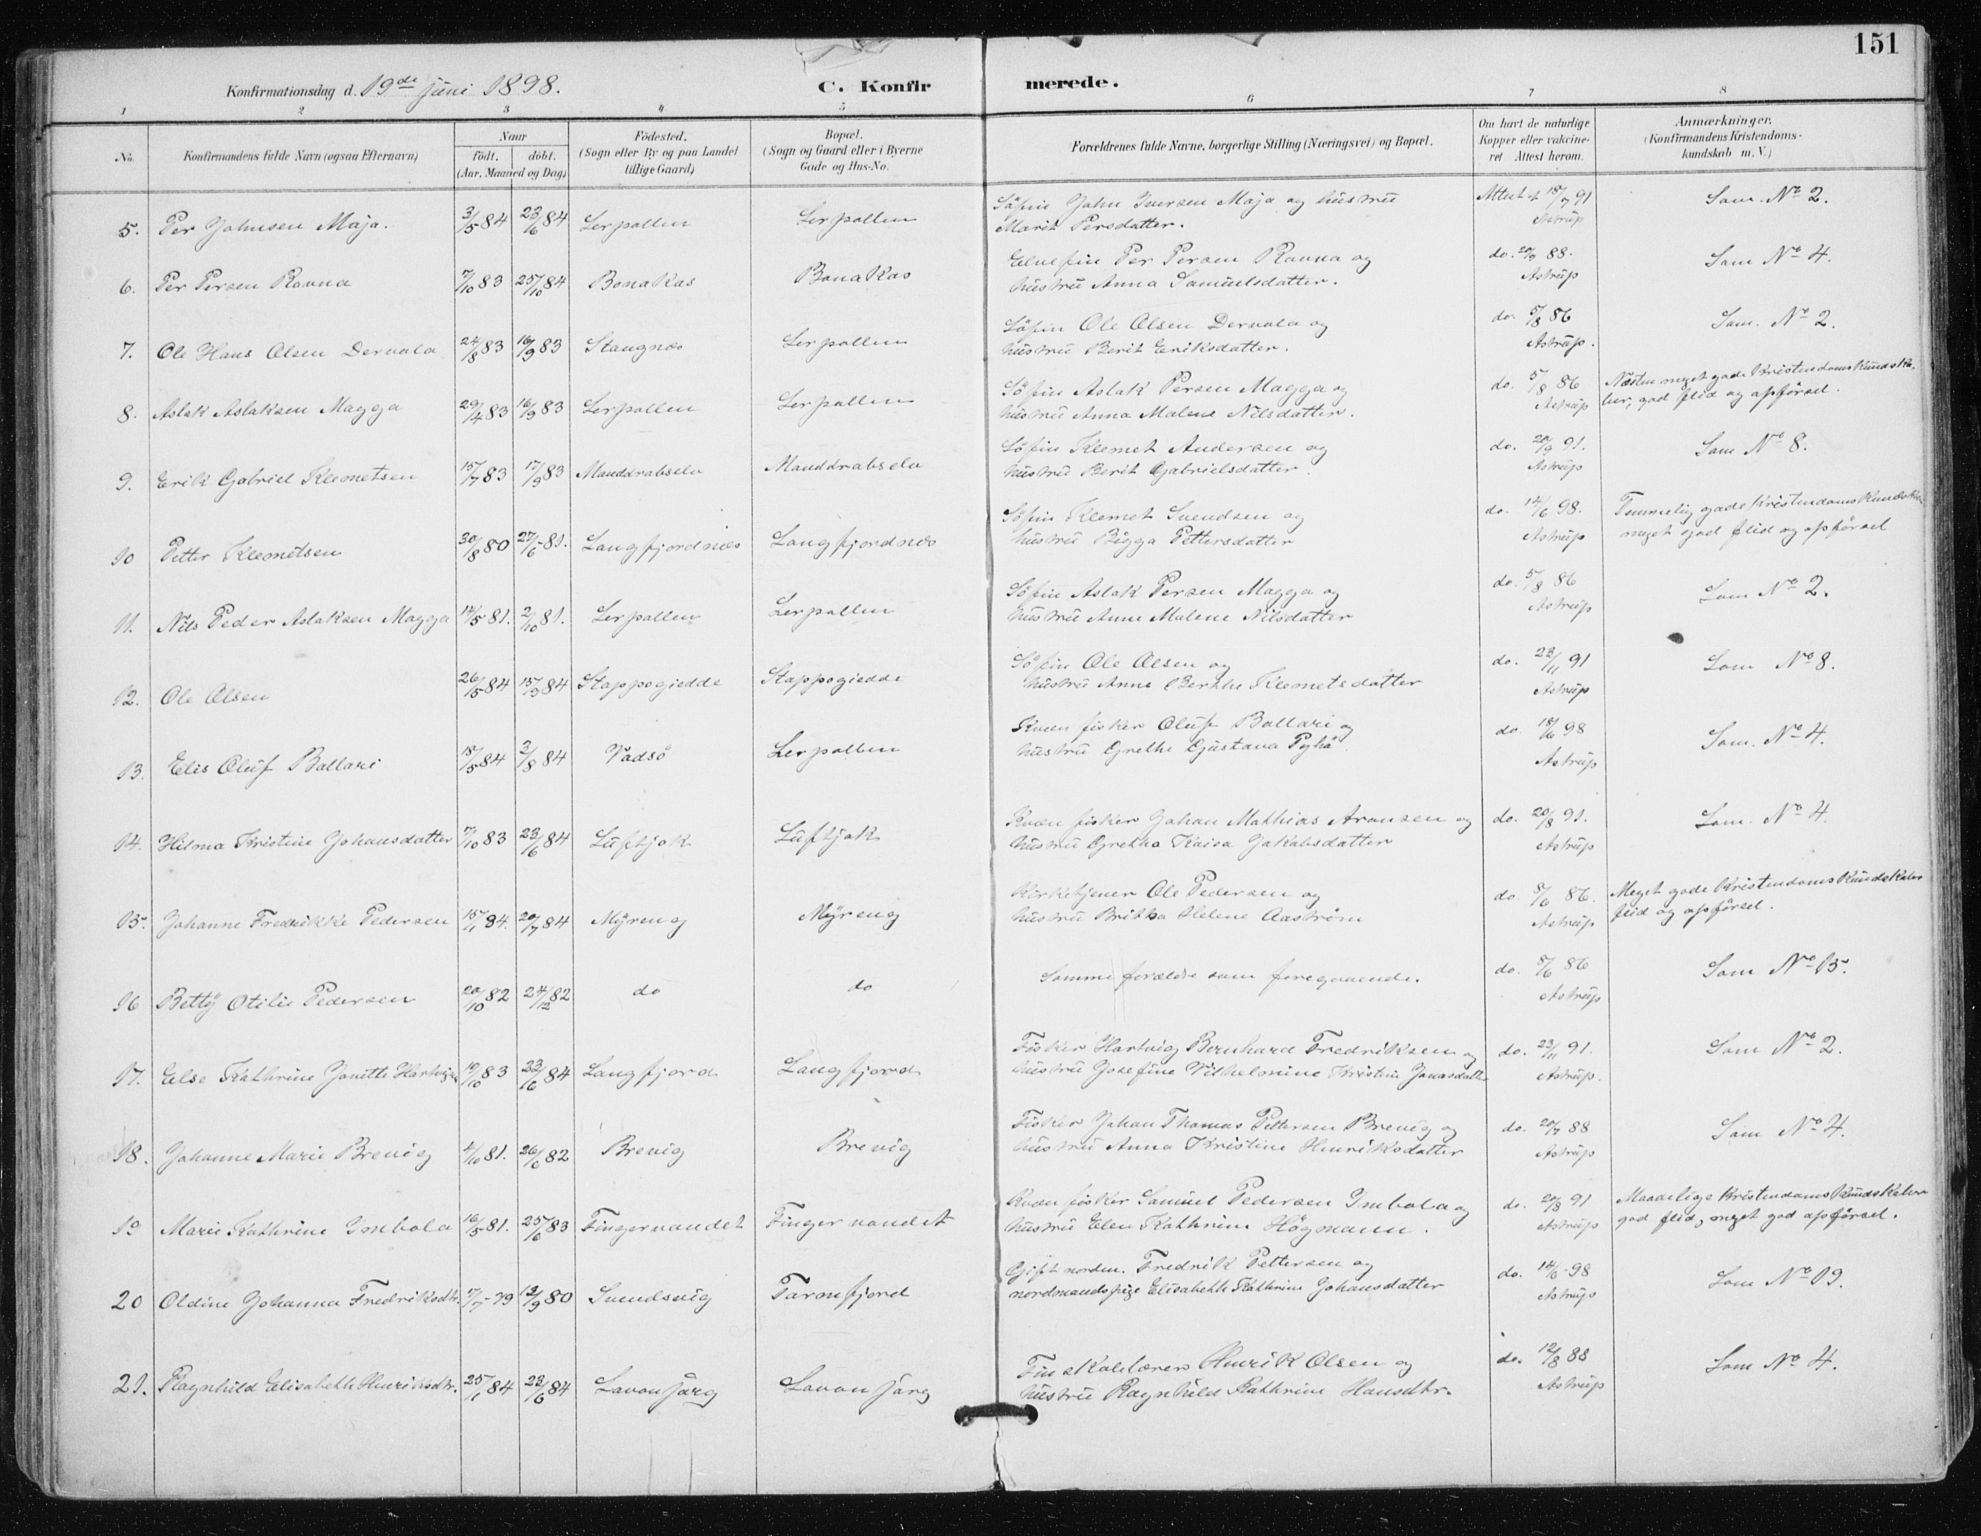 151
Konfirmationsdag d. 19de juni 1898. C. Konfirmerede.
1 2 3 4 5 6 7 8
No. Konfirmandens fulde Navn (ogsaa Efternavn) Naar født. døbt. (Aar, Maaned og Dag) Fødested. (Sogn eller By og paa Landet tillige Gaard) Bopæl. (Sogn og Gaard eller i Byerne Gade og Hus-No. Forældrenes fulde Navne, borgerlige Stilling (Næringsvei) og Bopæl. Om havt de naturlige Kopper eller vaccineret Attest herom. Anmærkninger. (Konfirmandens Kristendomskundskab m. V.)
5. Per Johnsen Maja. 3/5 84 23/6 84 Lerpollen Lerpollen Söfin John Iversen Maja og hustru Attest af 18/7 91 Som No 2.
Marit Persdatter. Astrup
6. Per Persen Ravna 7/10 83 25/10 84 Bonakas Bonakas Elvefin Per Persen Ravna og do. 20/7 88. Som No 4.
hustru Anna Samuelsdatter. Astrup
7. Ole Hans Olsen Dervola 24/8 83 16/9 83 Stangnæs Lerpollen Söfin Ole Olsen Dervola og do. 5/8 86 Som No 2.
hustru Berit Eriksdatter. Astrup.
8. Aslak Aslaksen Magga 29/4 83 16/9 83 Lerpollen Lerpollen Söfin Aslak Persen Magga og do. 5/8 86 Næsten meget gode Kristendomskundska-
hustru Anna Malene Nilsdatter. Astrup ber, god flid og opförsel.
9. Erik Gabriel Klemetsen 15/7 83 17/9 83 Manddrabselv Manddrabselv Söfin Klemet Andersen og do. 20/9 91. Som No 8.
hustru Berit Gabrielsdatter. Astrup
10 Petter Klemetsen 30/8 80 27/6 81. Langfjordnæs Langfjordnæs Söfin Klemet Svendsen og do. 14/6 98. Temmelig gode Kristendomskundsk.
hustru Bigga Pettersdatter Astrup meget god flid og opförsel
11. Nils Peder Aslaksen Magga 14/5 81. 2/10 81. Lerpollen Lerpollen Söfin Aslak Persen Magga og do. 5/8 86 Som No 2.
hustru Anne Malene Nilsdatter Astrup
12. Ole Olsen 26/5 84 15/3 84 Stappogiedde Stappogiedde Söfin Ole Olsen og do. 23/11 91 Som No 8.
hustru Anne Berthe Klemetsdatter Astrup
13. Elis Oluf Ballari 18/5 84 3/8 84 Vadsö Lerpollen Kvæn fisker Oluf Ballari og do. 18/6 98 Som No 4.
hustru Grethe Gustava Pyhä. Astrup
14. Hilma Kristine Johansdatter 7/10 83 23/6 84 Luftjok Luftjok Kvæn fisker Johan Mathias Aronsen og do. 20/8 91. Som No 4.
hustru Gretha Kaisa Jakobsdatter Astrup
15. Johanne Fredrikke Pedersen 15/1 84. 20/7 84 Myreng Myreng Kirketjener Ole Pedersen og do. 8/6 86. Meget gode Kristendomskundskaber
hustru Britha Helene Aaström Astrup flid og opförsel.
16 Betty Otilie Pedersen 20/10 82 24/12 82 do do Samme forældre som foregaaende. do. 8/6 86 Som No 15.
Astrup
17. Else Kathrine Jonette Hartvigs. 19/10 83 23/6 84 Langfjord Langfjord Fisker Hartvig Bernhard Fredriksen og do. 23/11 91. Som No 2.
hustru Josefine Vilhelmine Kristine Jonasdatter Astrup.
18. Johanne Marie Brevig 4/10 81. 26/6 82 Brevig Brevig Fisker Johan Thomas Pettersen Brevig og do. 20/7 88 Som No 4.
hustru Anna Kristine Henriksdatter Astrup
19 Marie Kathrine Imbola 16/5 81. 25/6 83 Fingervandet Fingervandet Kvæn fisker Samuel Pedersen Imbola og do. 20/8 91 Maadelige Kristendomskundskaber
hustru Elen Kathrine Högmann. Astrup god flid, meget god opförsel.
20 Oldine Johanna Fredriksdtr. 7/7 79 12/9 80 Svendsvig Tarmfjord Gift norden. Fredrik Pettersen og do. 14/6 98 Som No 19.
nordmandspige Elisabeth Kathrine Johansdatter Astrup
21. Ragnhild Elisabeth Henriksdtr. 25/1 84 23/6 84 Lavonjarg Lavonjarg Fin skolelærer Henrik Olsen og do. 12/8 88 Som No 4.
hustru Ragnhild Kathrine Hansdtr. Astrup